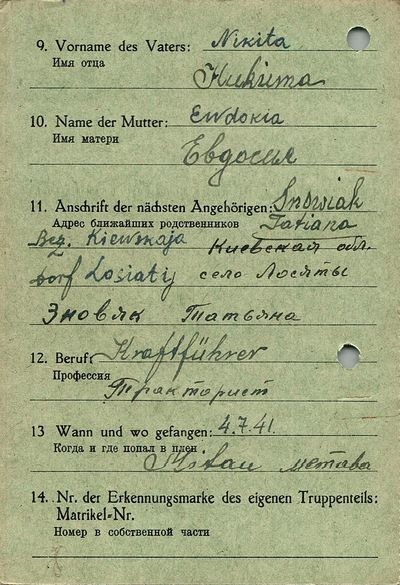 9. Vorname des Vaters: Nikita
Имя отца
Никита
10. Name der Mutter: Ewdokia
Имя матери
Евдосия
11. Anschrift der nächsten Angehörigen: Snowiak
Адрес ближайших родственников Tatiana
Bez. Kiewskaja Киевская обл.
Dorf Losiatij село Лосяты
Зновяк Татьяна
12. Beruf: Kraftführer
Профессия
Тракторист
13 Wann und wo gefangen: 4.7.41.
Когда и где попал в плен
Mitau метава
14. Nr. der Erkennungsmarke des eigenen Truppenteils:
Matrikel-Nr.
Номер в собственной части